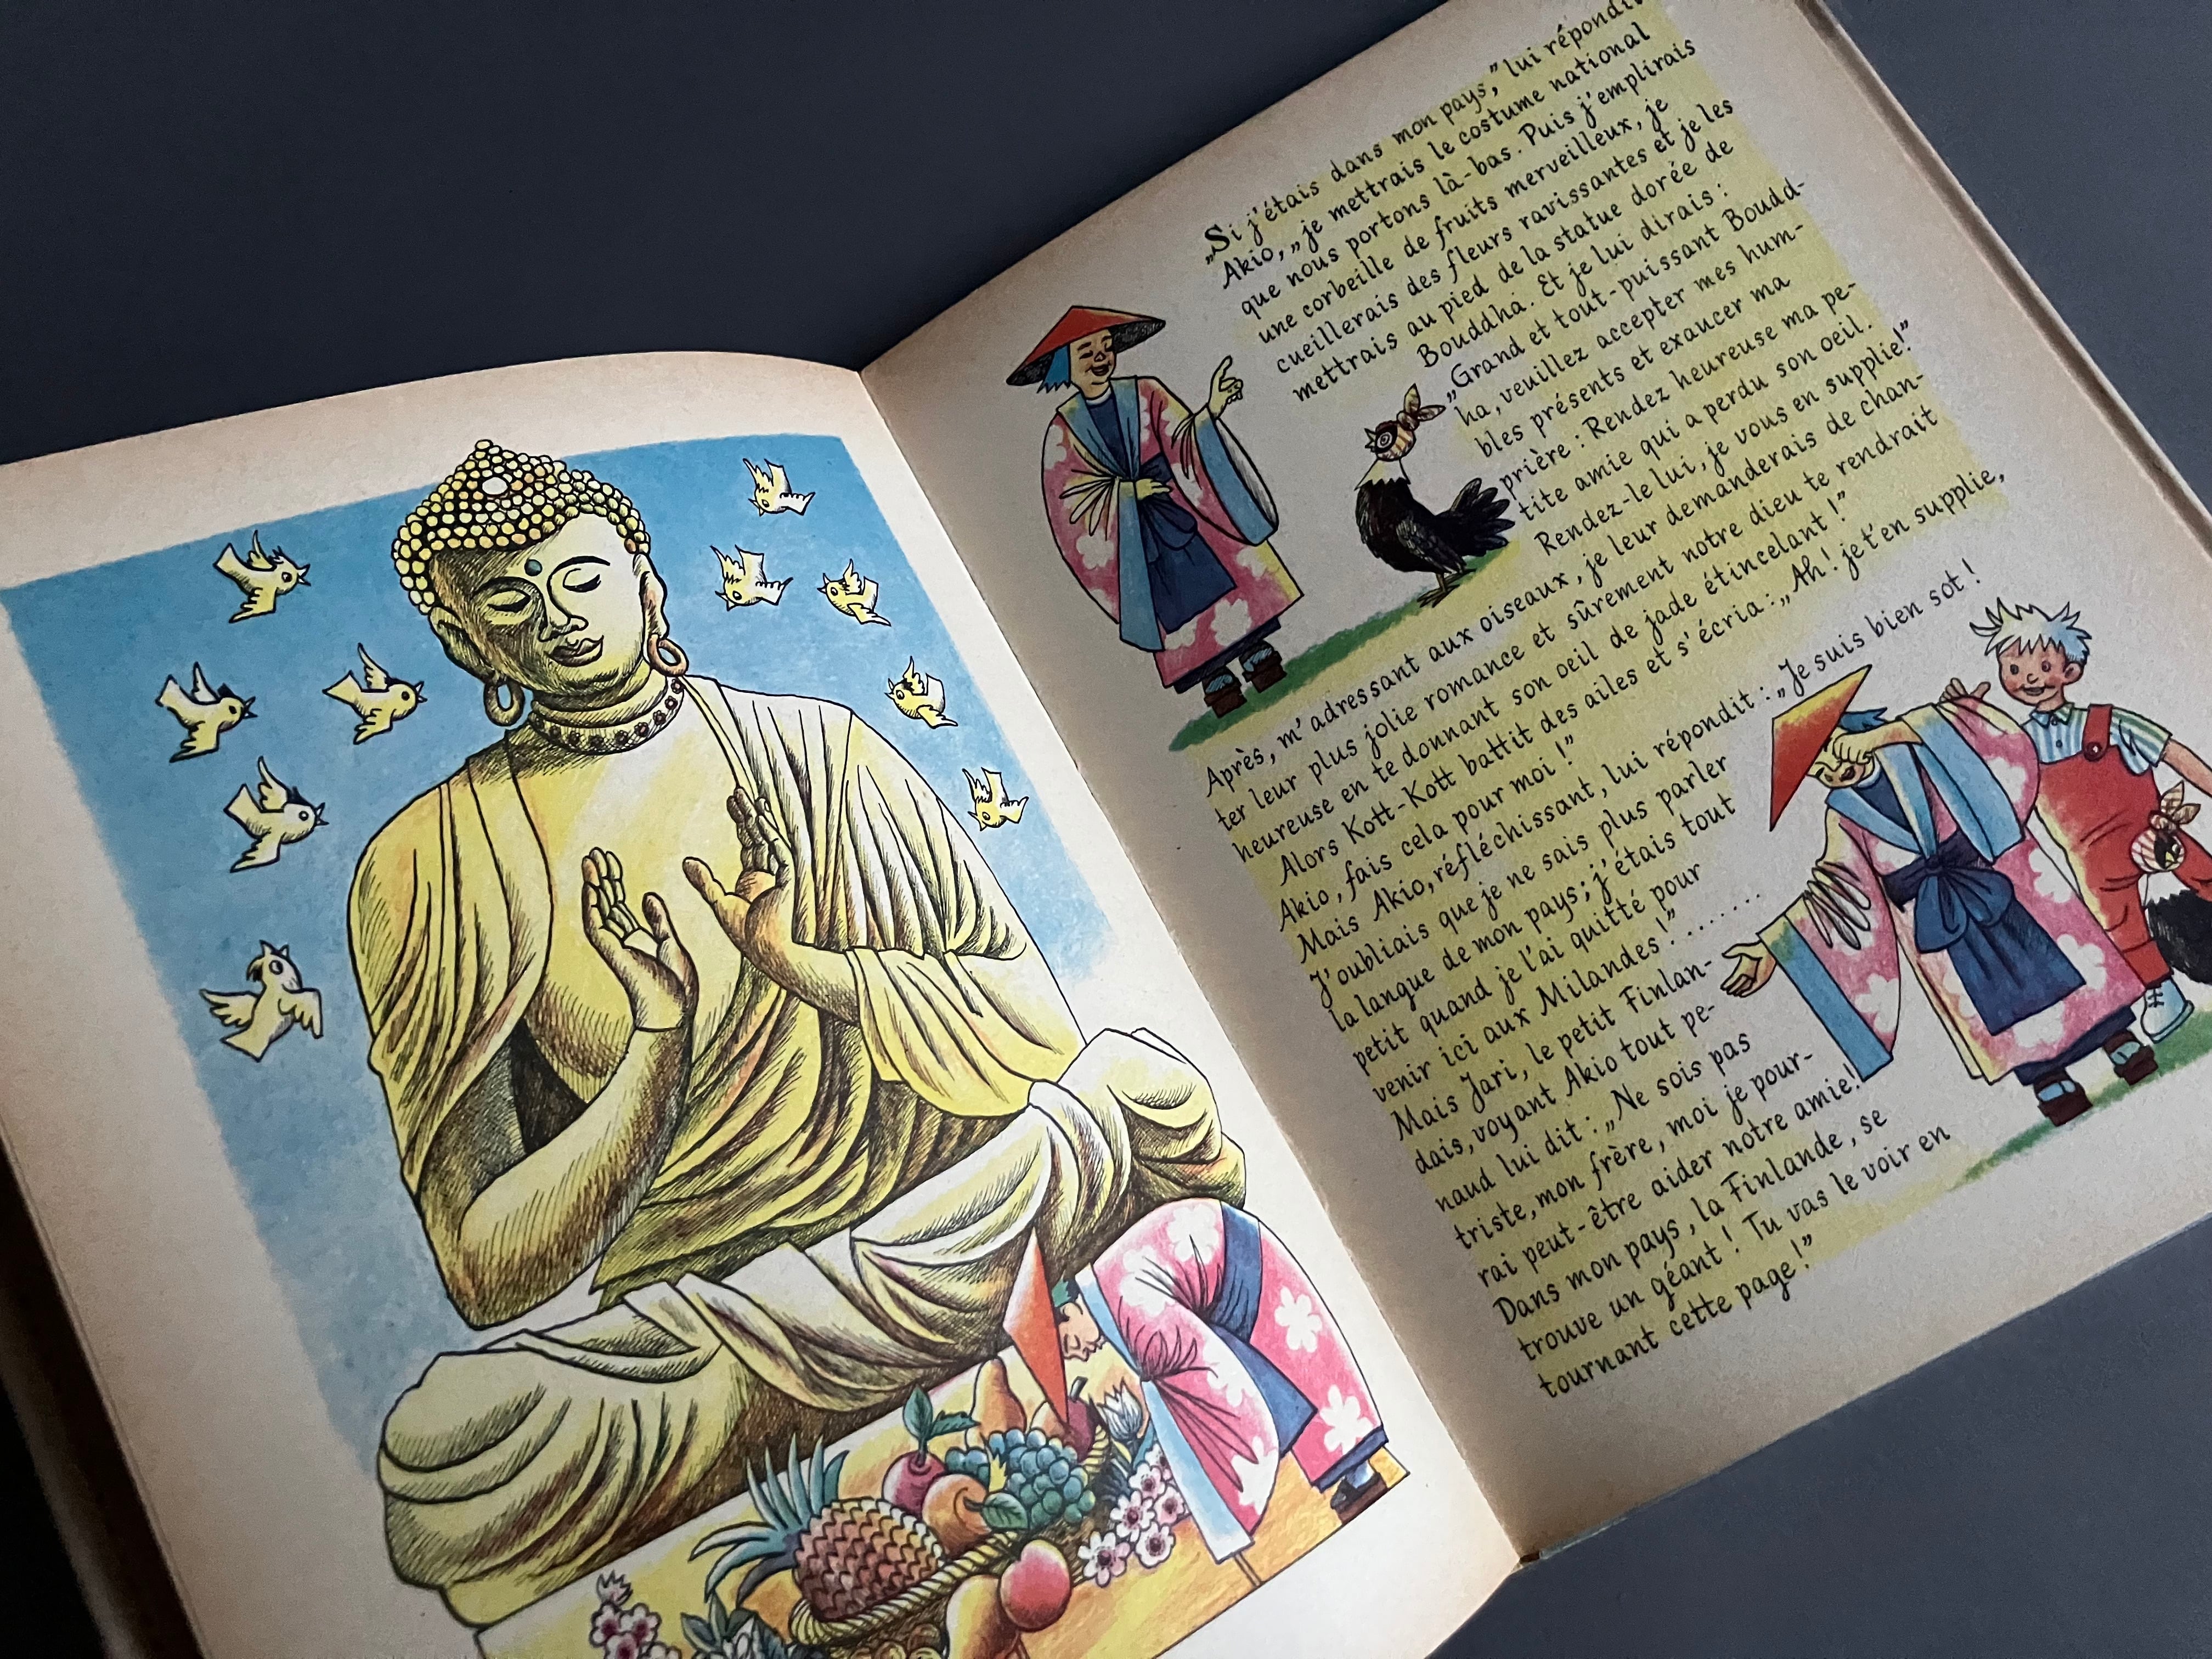 „Si j'étais dans mon pays,” lui répondit
Akio, „je mettrais le costume national
que nous portons là-bas. Puis j'emplirais
une corbeille de fruits merveilleux, je
cueillerais des fleurs ravissantes et je les
mettrais au pied de la statue dorée de
Bouddha. Et je lui dirais :
„Grand et tout-puissant Boudd-
ha, veuillez accepter mes hum-
bles présents et exaucer ma
prière : Rendez heureuse ma pe-
tite amie qui a perdu son oeil.
Rendez-le lui, je vous en supplie!”
Après, m'adressant aux oiseaux, je leur demanderais de chan-
ter leur plus jolie romance et sûrement notre dieu te rendrait
heureuse en te donnant son oeil de jade étincelant !”
Alors Kott-Kott battit des ailes et s'écria : „Ah ! je t'en supplie,
Akio, fais cela pour moi !”
Mais Akio, réfléchissant, lui répondit : „Je suis bien sot !
J'oubliais que je ne sais plus parler
la langue de mon pays ; j'étais tout
petit quand je l'ai quitté pour
venir ici aux Milandes !” ........
Mais Jari, le petit Finlan-
dais, voyant Akio tout pe-
naud lui dit : „Ne sois pas
triste, mon frère, moi je pour-
rai peut-être aider notre amie!
Dans mon pays, la Finlande, se
trouve un géant ! Tu vas le voir en
tournant cette page !”